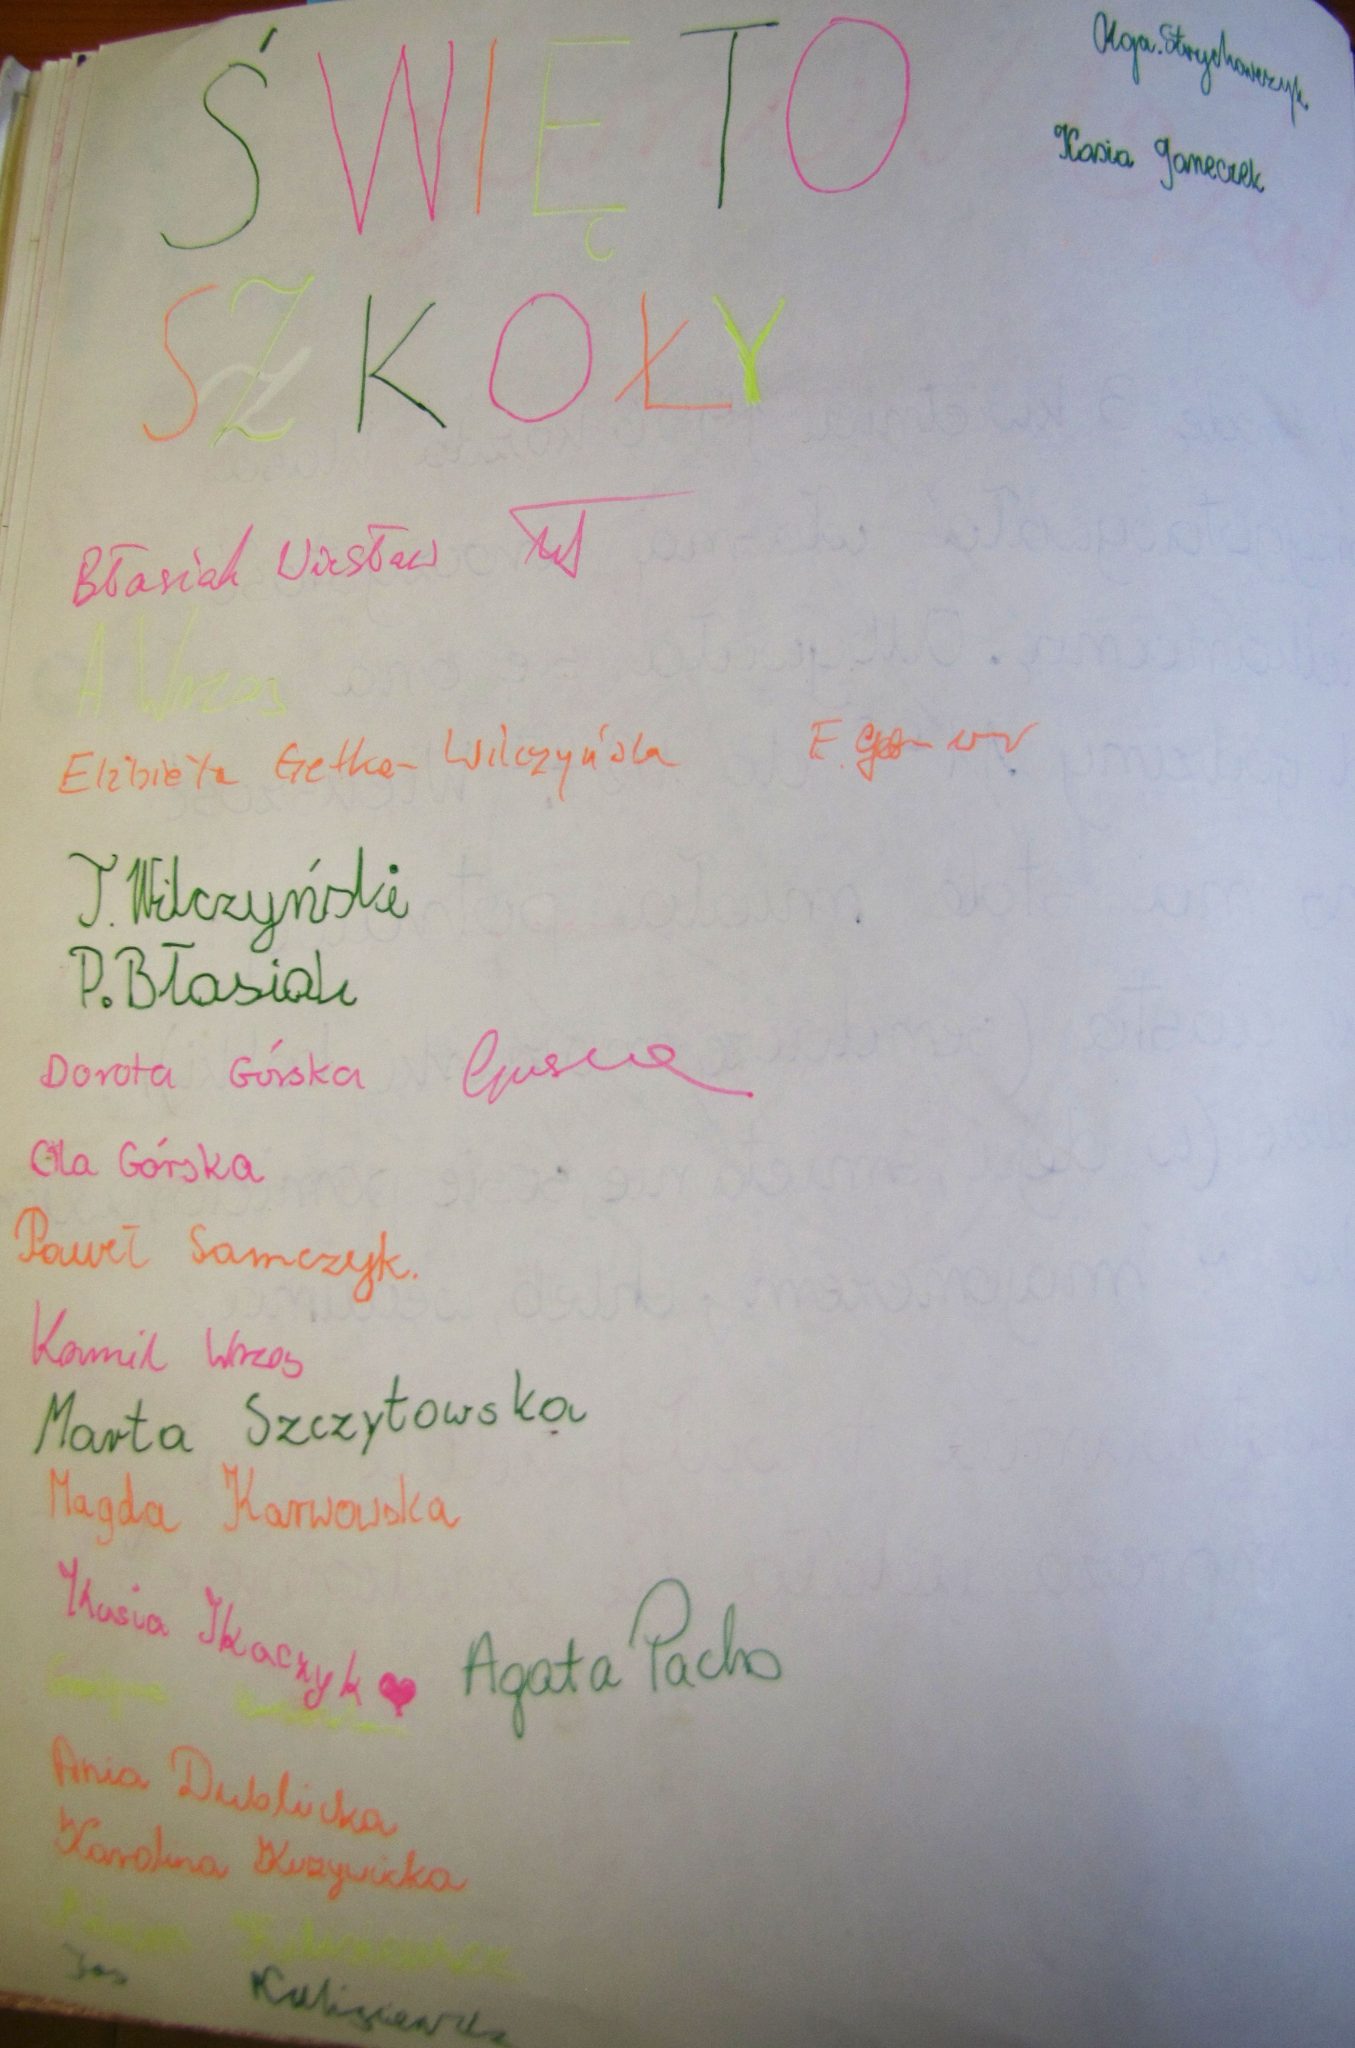 ŚWIĘTO
SZKOŁY
Olga Strychowczyk
Kasia Janeczek
Błasiak Wiesław
A Wrzos
Elżbieta Getka-Wilczyńska
J. Wilczyński
P. Błasiak
Dorota Górska
Ola Górska
Paweł Samczyk.
Kamil Wrzos
Marta Szczytowska
Magda Karwowska
Kasia Tkaczyk
Agata Pacho
Ania Dublicka
Karolina